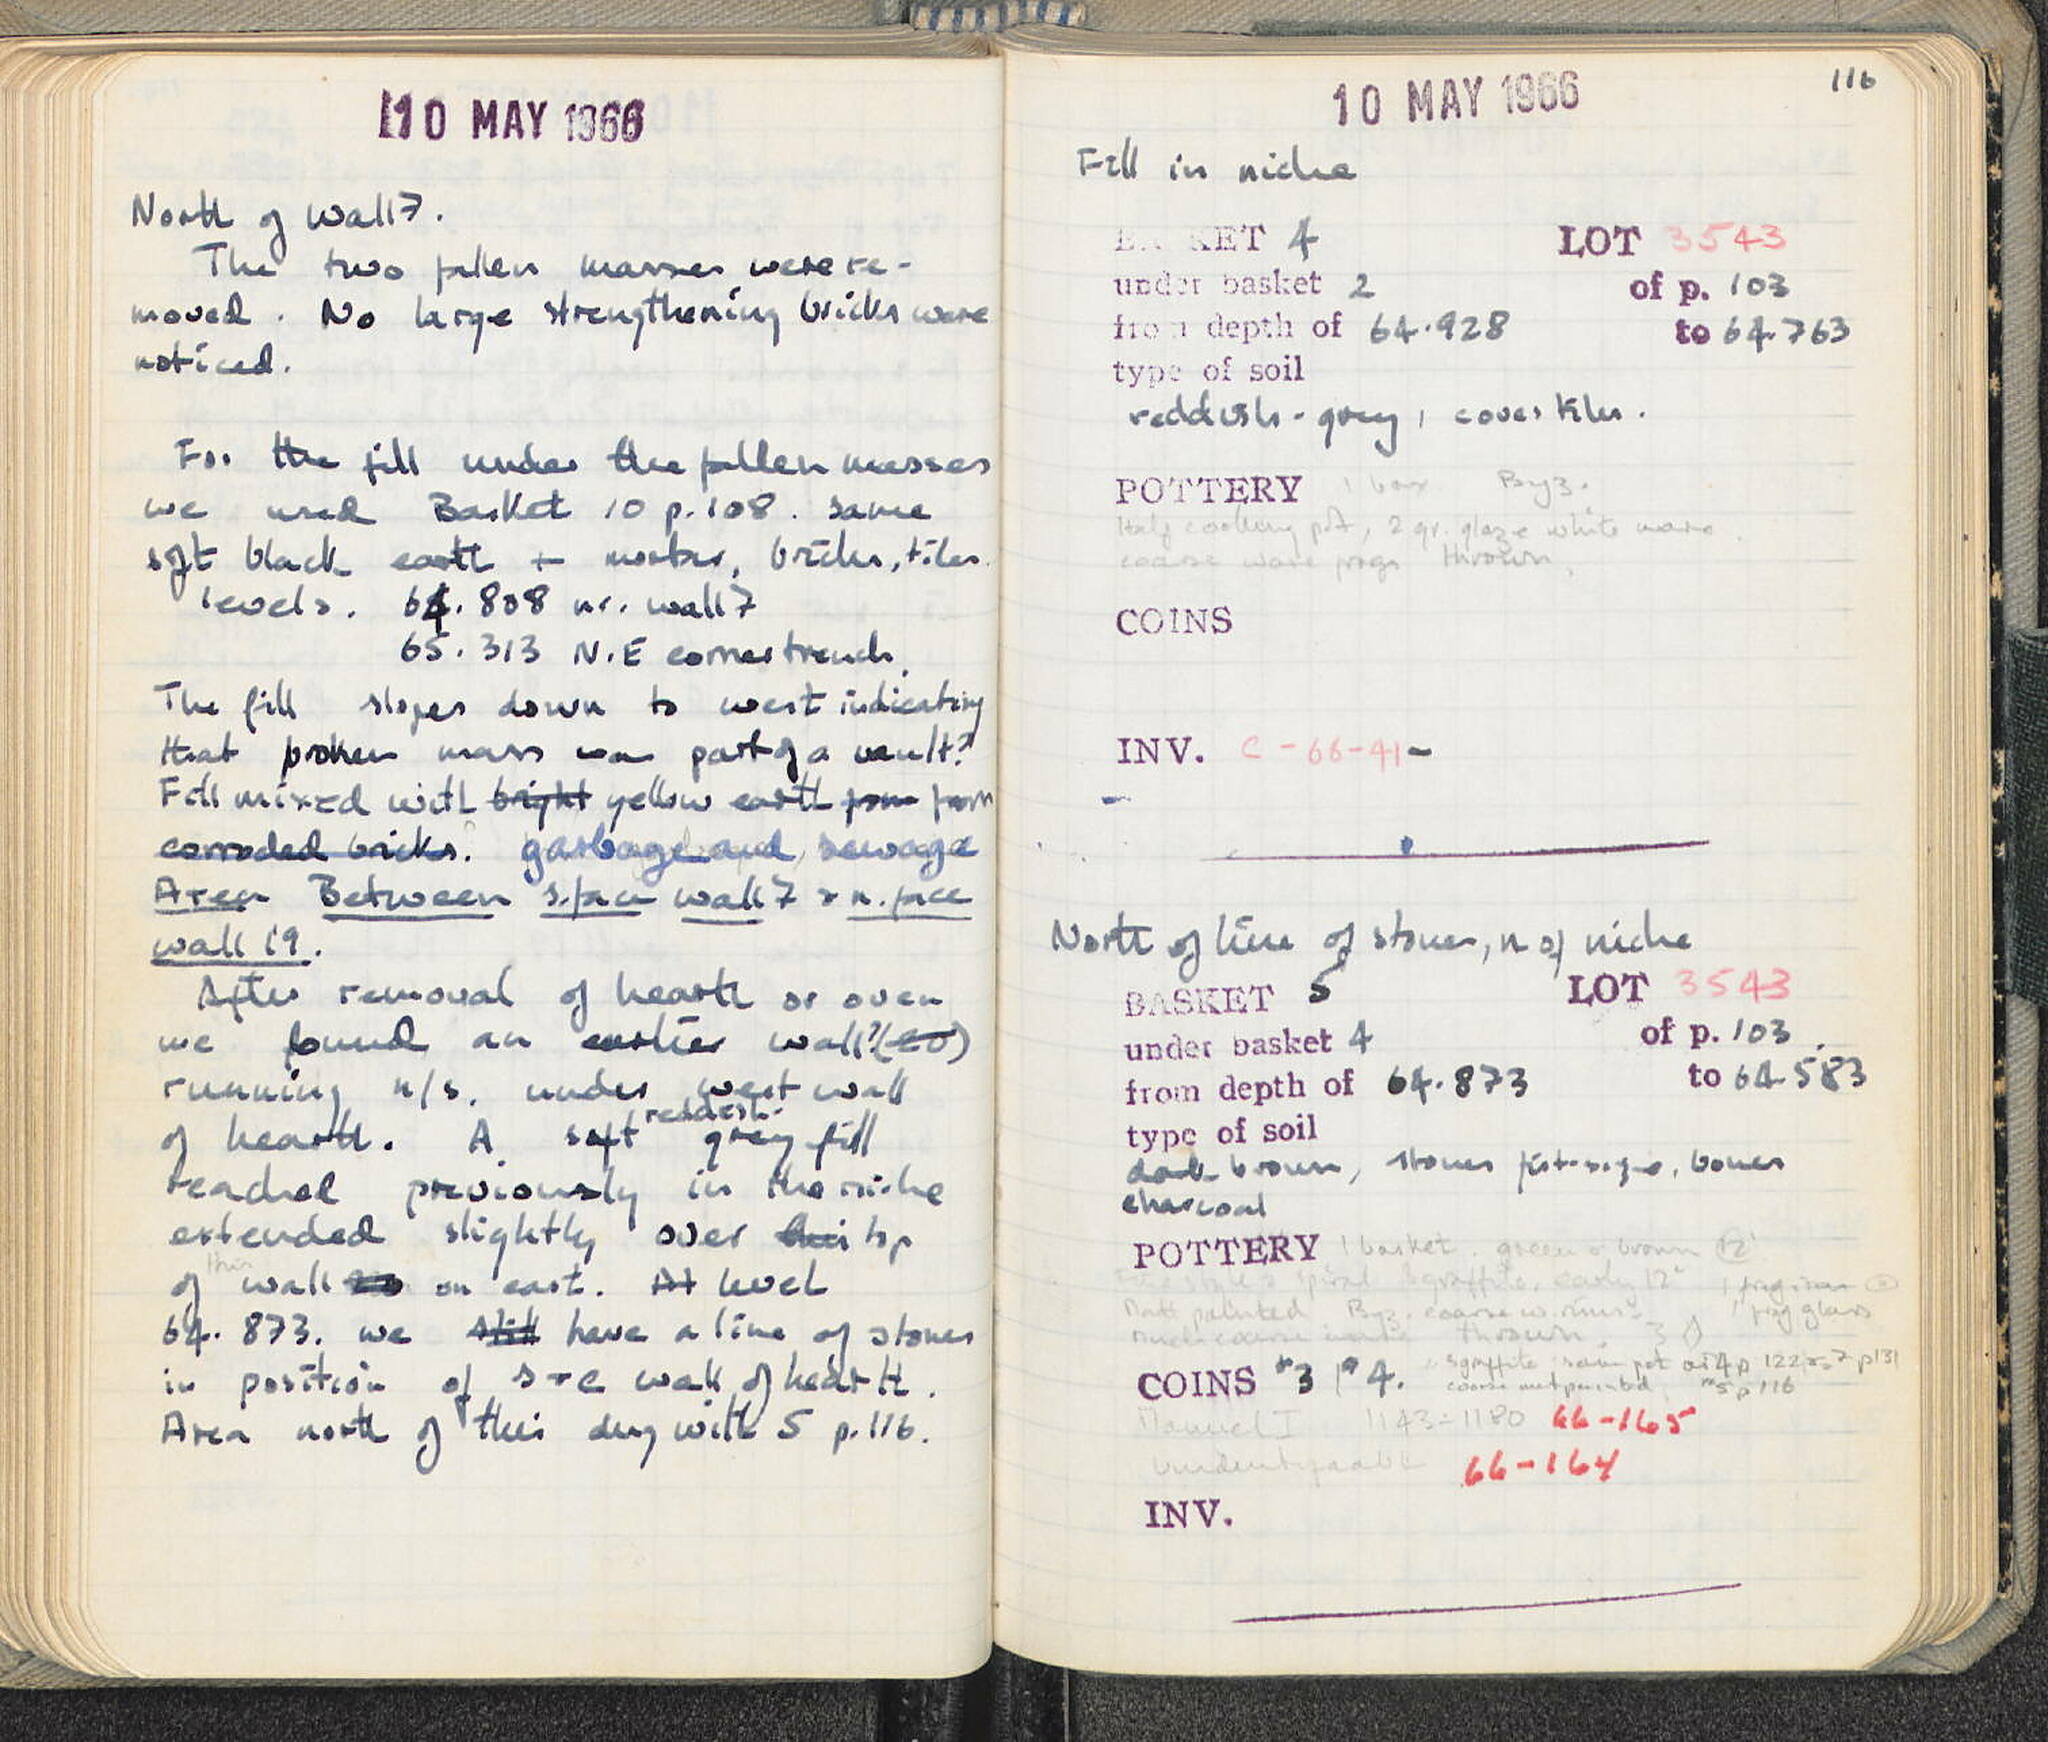 10 MAY 1966
North of wall 7.
The two fallen masses were re-
moved. No large strengthening bricks were
noticed.
For the fill under the fallen masses
we used Basket 10 p. 108. same
soft black earth + mortar, bricks, tiles.
levels. 64.808 nr. wall 7
65.313 N.E corner trench.
The fill slopes down to west indicating
that broken mass was part of a vault?
Fill mixed with bright yellow earth from from
corroded bricks. garbage and sewage
Area Between s. face wall 7 & n. face
wall 19.
After removal of hearth or oven
we found an earlier wall? (20)
running n/s. under west wall
of hearth. A soft reddish grey fill
reached previously in the niche
extended slightly over this top
of this wall 20 on east. At level
64.873. we still have a line of stones
in position of s. wall of hearth.
Area north of this dug with 5 p. 116.
116
10 MAY 1966
Fill in niche
BASKET 4 LOT 3543
under basket 2 of p. 103
from depth of 64.928 to 64.763
type of soil
reddish-grey, cover tiles.
POTTERY 1 box Byz.
Half cooking pot, 2 gr. glaze white ware.
coarse ware frags thrown.
COINS
INV. C-66-41-
North of line of stones, n of niche
BASKET 5 LOT 3543
under basket 4 of p. 103.
from depth of 64.873 to 64.583
type of soil
dark brown, stones fist-size, bones
charcoal
POTTERY 1 basket. green & brown 12
spiral sgraffito, early 12 1 frag
Matt painted Byz. coarse w. rims 1 frag glass
Much coarse ware thrown
COINS #3 #4. sgraffito: same pot as 4 p 122 p 131
coarse matt painted 5 p 116
Manuel I 1143-1180 66-165
Unidentifiable 66-164
INV.